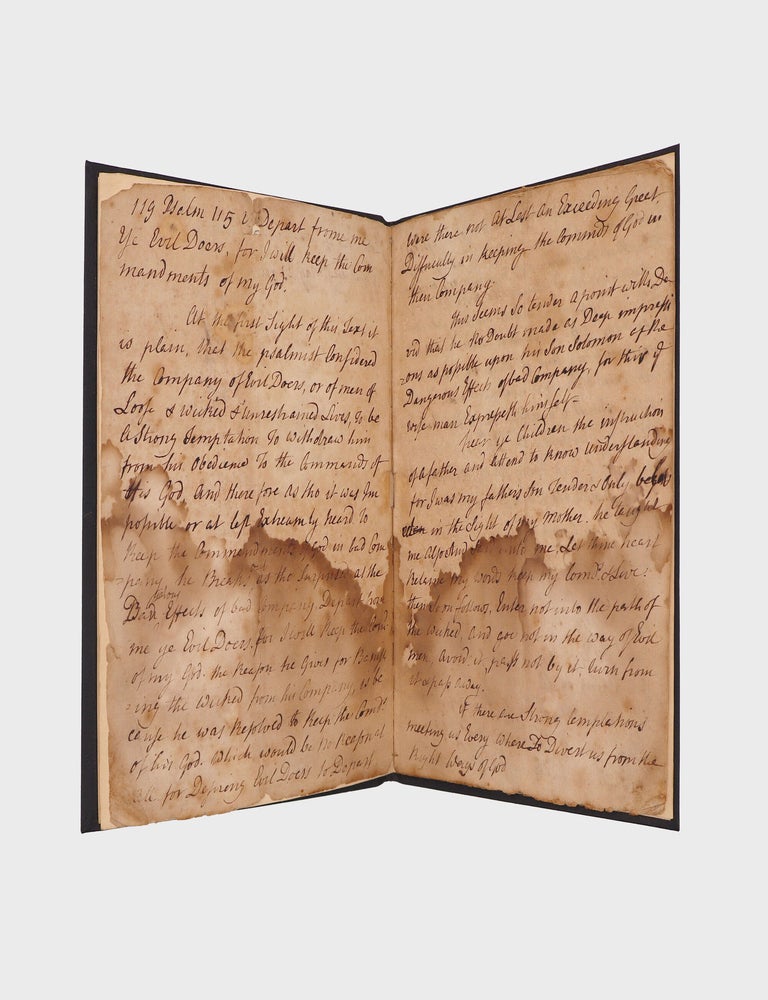 119 Psalm 115 v Depart frome me
Ye Evil Doers, for I will keep the Com
mandments of my God.
At the first Sight of this Text it
is plain, that the psalmist Considered
the Company of Evil Doers, or of men of
Loose & wicked & unrestrained Lives, to be
A Strong Temptation To withdraw him
from his obedience To the Commands of
His God. And there fore as tho it was Im
possible or at lest Extreamly heard To
keep the Commandments of God in bad Com
pany, he Breaks at the
Bad Effects of bad Company Depart from
me ye Evil Doers. for I will keep the Comd
of my God. the Reason he Gives for Banish
=ing the wicked from his Company, is be
cause he was Resolved to keep the Comds
of his God. which would be no Reason at
all for Desireing Evil Doers to Depart
ware there not At Lest An Exceeding Great
Difficulty in keeping the Commds of God in
their Company.
This Seems So tender A point with Da-
vid that he No Doubt made as Deep impressi
=ons as possible upon his Son Solomon of the
Dangerous Effects of bad Company, for this ye
wise man Expresseth himself=
hear ye Children the instruction
of a father and attend to know understanding
for I was my fathers Son Tender & only
in the Sight of my mother. he taught
me Also And Said unto me, Let thine heart
Retaine my words keep my Comds & Live:
then Soon follows. Enter not into the path of
the wicked And goe not in the way of Evil
men. avoid it, pass not by it, turn from
it & pass away.
If there are Strong temptations
meeting us Every where To Divert us from the
Right ways of God